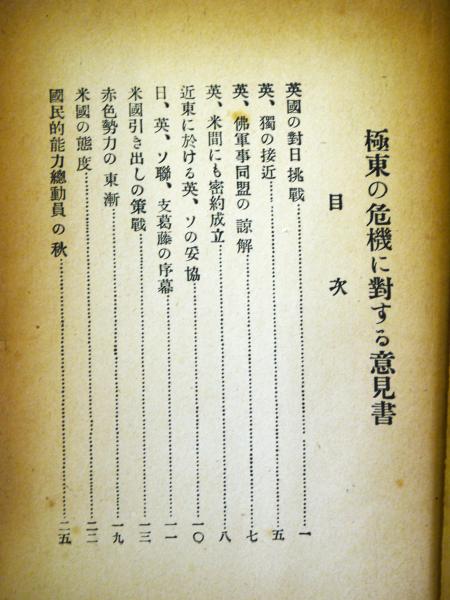 極東の危機に對する意見書
目次
英國の對日挑戰……一
英、獨の接近……五
英、佛軍事同盟の諒解……七
英、米間にも密約成立……八
近東に於ける英、ソの妥協……一〇
日、英、ソ聯、支葛藤の序幕……一一
米國引き出しの策戰……一三
赤色勢力の東漸……一九
米國の態度……二二
國民的能力總動員の秋……二五